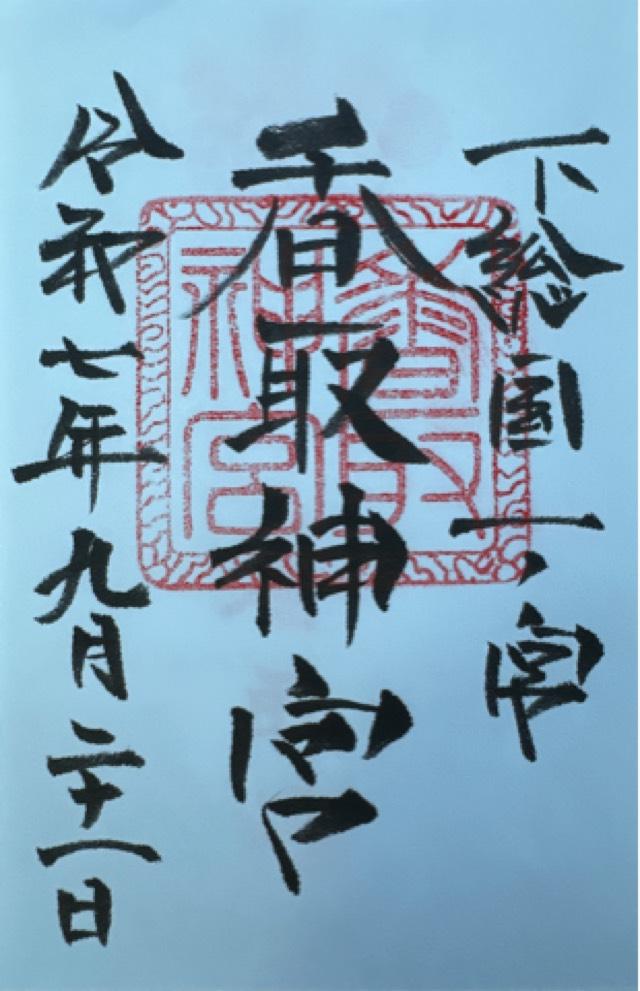 下総国一之宮
香取神宮
令和七年九月二十一日
香取神宮